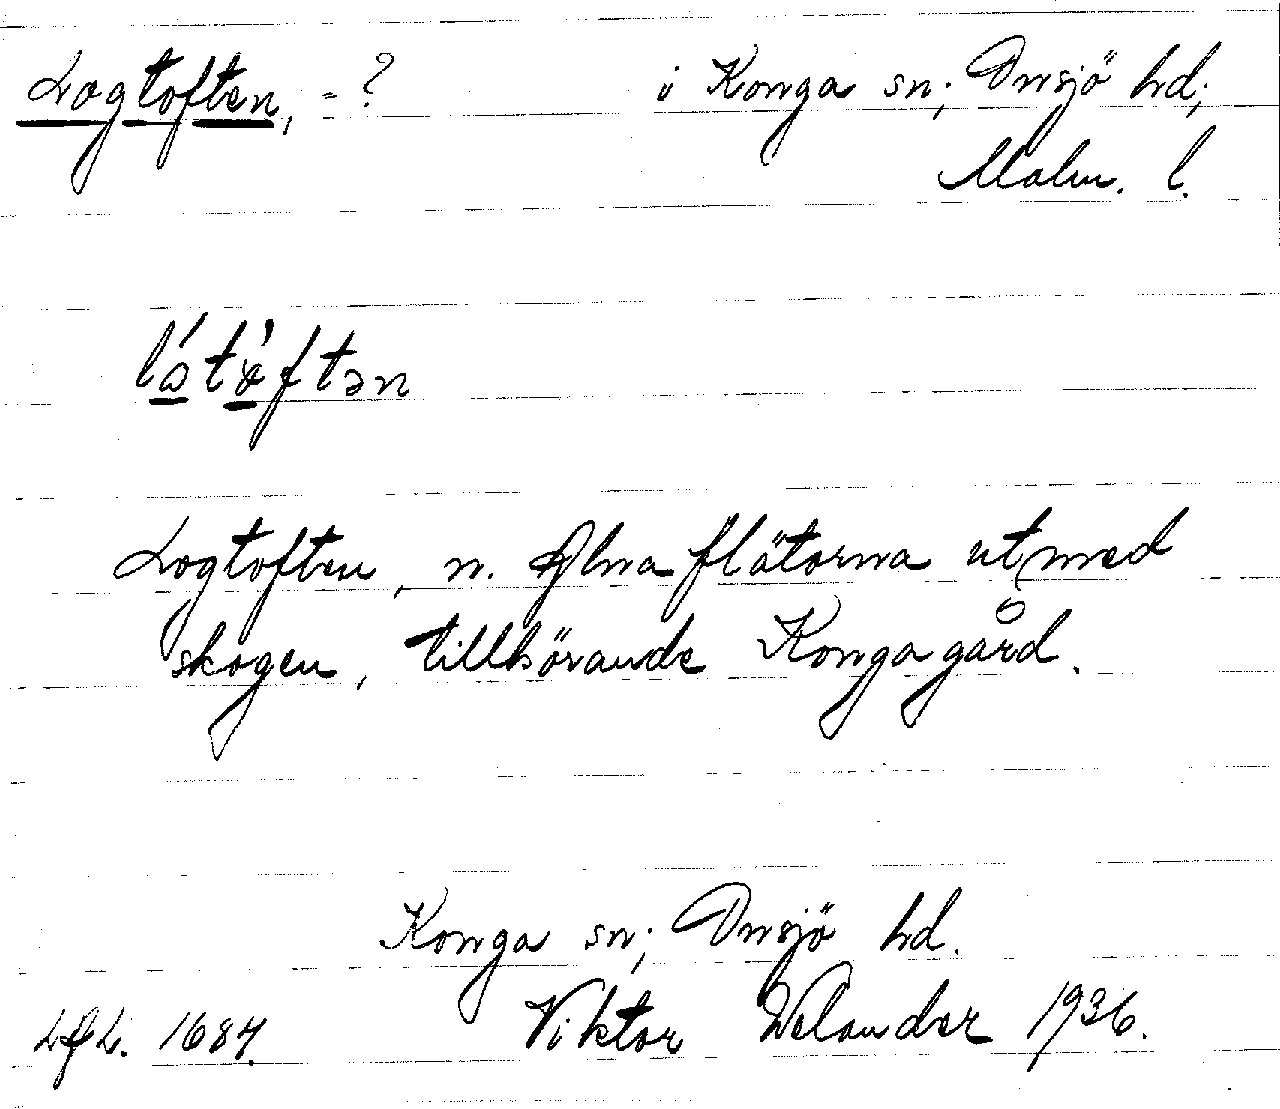 Logtoften, - ? i Konga sn; Onsjö hd;
Malm. l.
látòftən
Logtoften, n. Alnaflätorna utmed
skogen, tillhörande Kongagård.
Konga sn; Onsjö hd.
Viktor Welander 1936.
LfL. 1684.